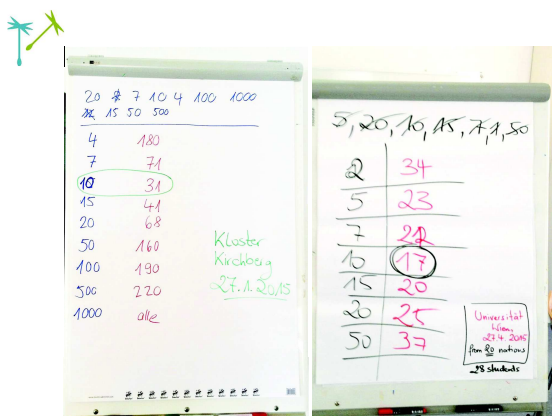 20 7 10 4 100 1000
15 50 500
4 180
7 71
10 31
15 41
20 68
50 160
100 190
500 220
1000 alle
Kloster
Kirchberg
27.1.2015
5, 20, 10, 15, 7, 1, 50
2 34
5 23
7 22
10 17
15 20
20 25
50 37
Universität
Wien,
27.4.2015
from 20 nations
28 students